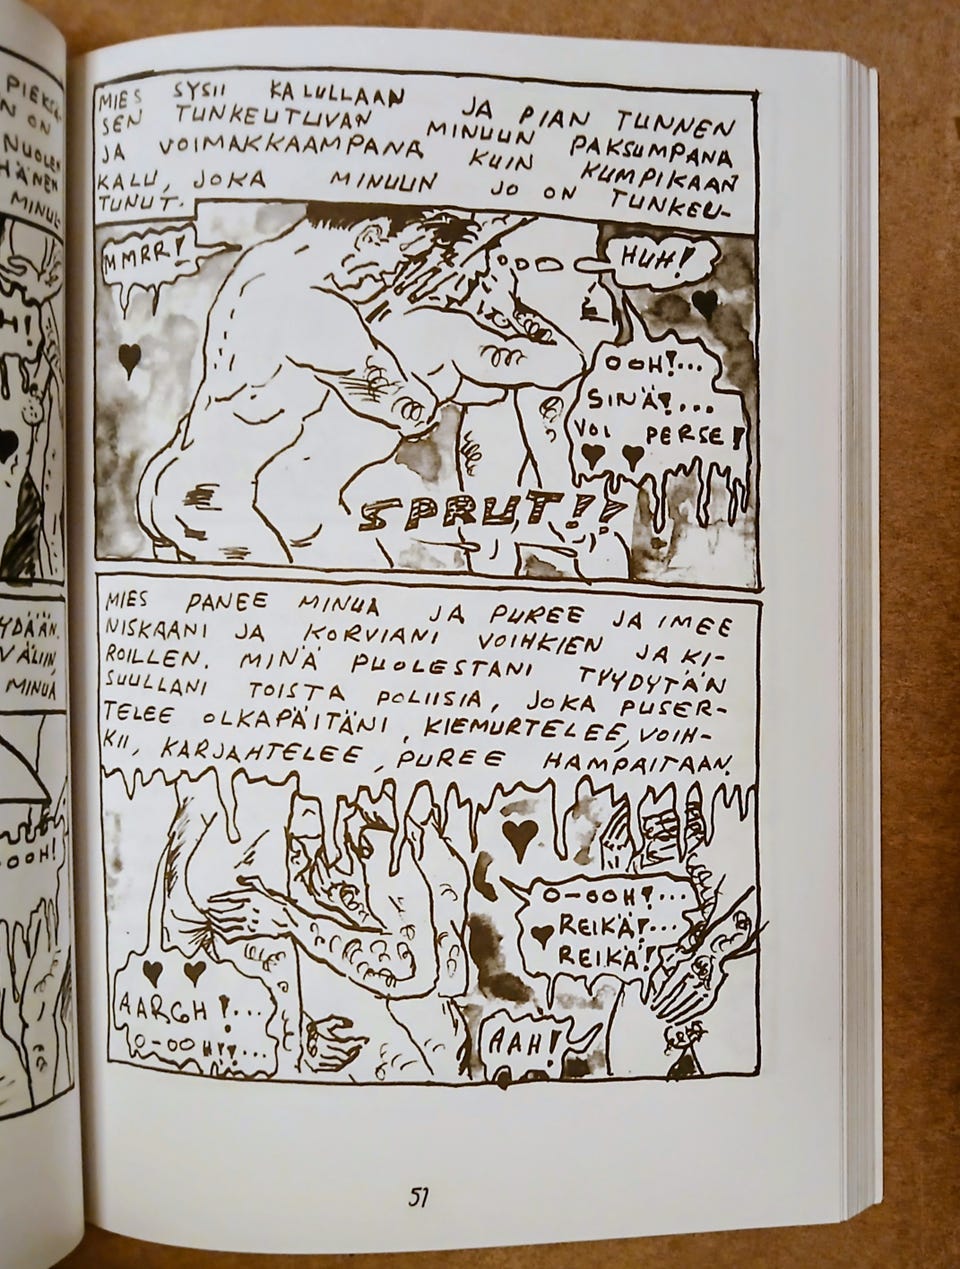 PIEKSÄ-
N ON
NUOLEN
HÄNEN
MINUL-
H!
YDÄÄN.
VÄLIIN,
MINUA
-OOH!
MIES SYSII KALULLAAN JA PIAN TUNNEN
SEN TUNKEUTUVAN MINUUN PAKSUMPANA
JA VOIMAKKAAMPANA KUIN KUMPIKAAN
KALU, JOKA MINUUN JO ON TUNKEU-
TUNUT.
MMRR!
HUH!
OOH!...
SINÄ!...
VOI PERSE!
SPRUT!!
MIES PANEE MINUA JA PUREE JA IMEE
NISKAANI JA KORVIANI VOIHKIEN JA KI-
ROILLEN. MINÄ PUOLESTANI TYYDYTÄN
SUULLANI TOISTA POLIISIA, JOKA PUSER-
TELEE OLKAPÄITÄNI, KIEMURTELEE, VOIH-
KII, KARJAHTELEE, PUREE HAMPAITAAN.
O-OOH!...
REIKÄ!...
REIKÄ!
AARGH!...
O-OOH!!...
AAH!
51